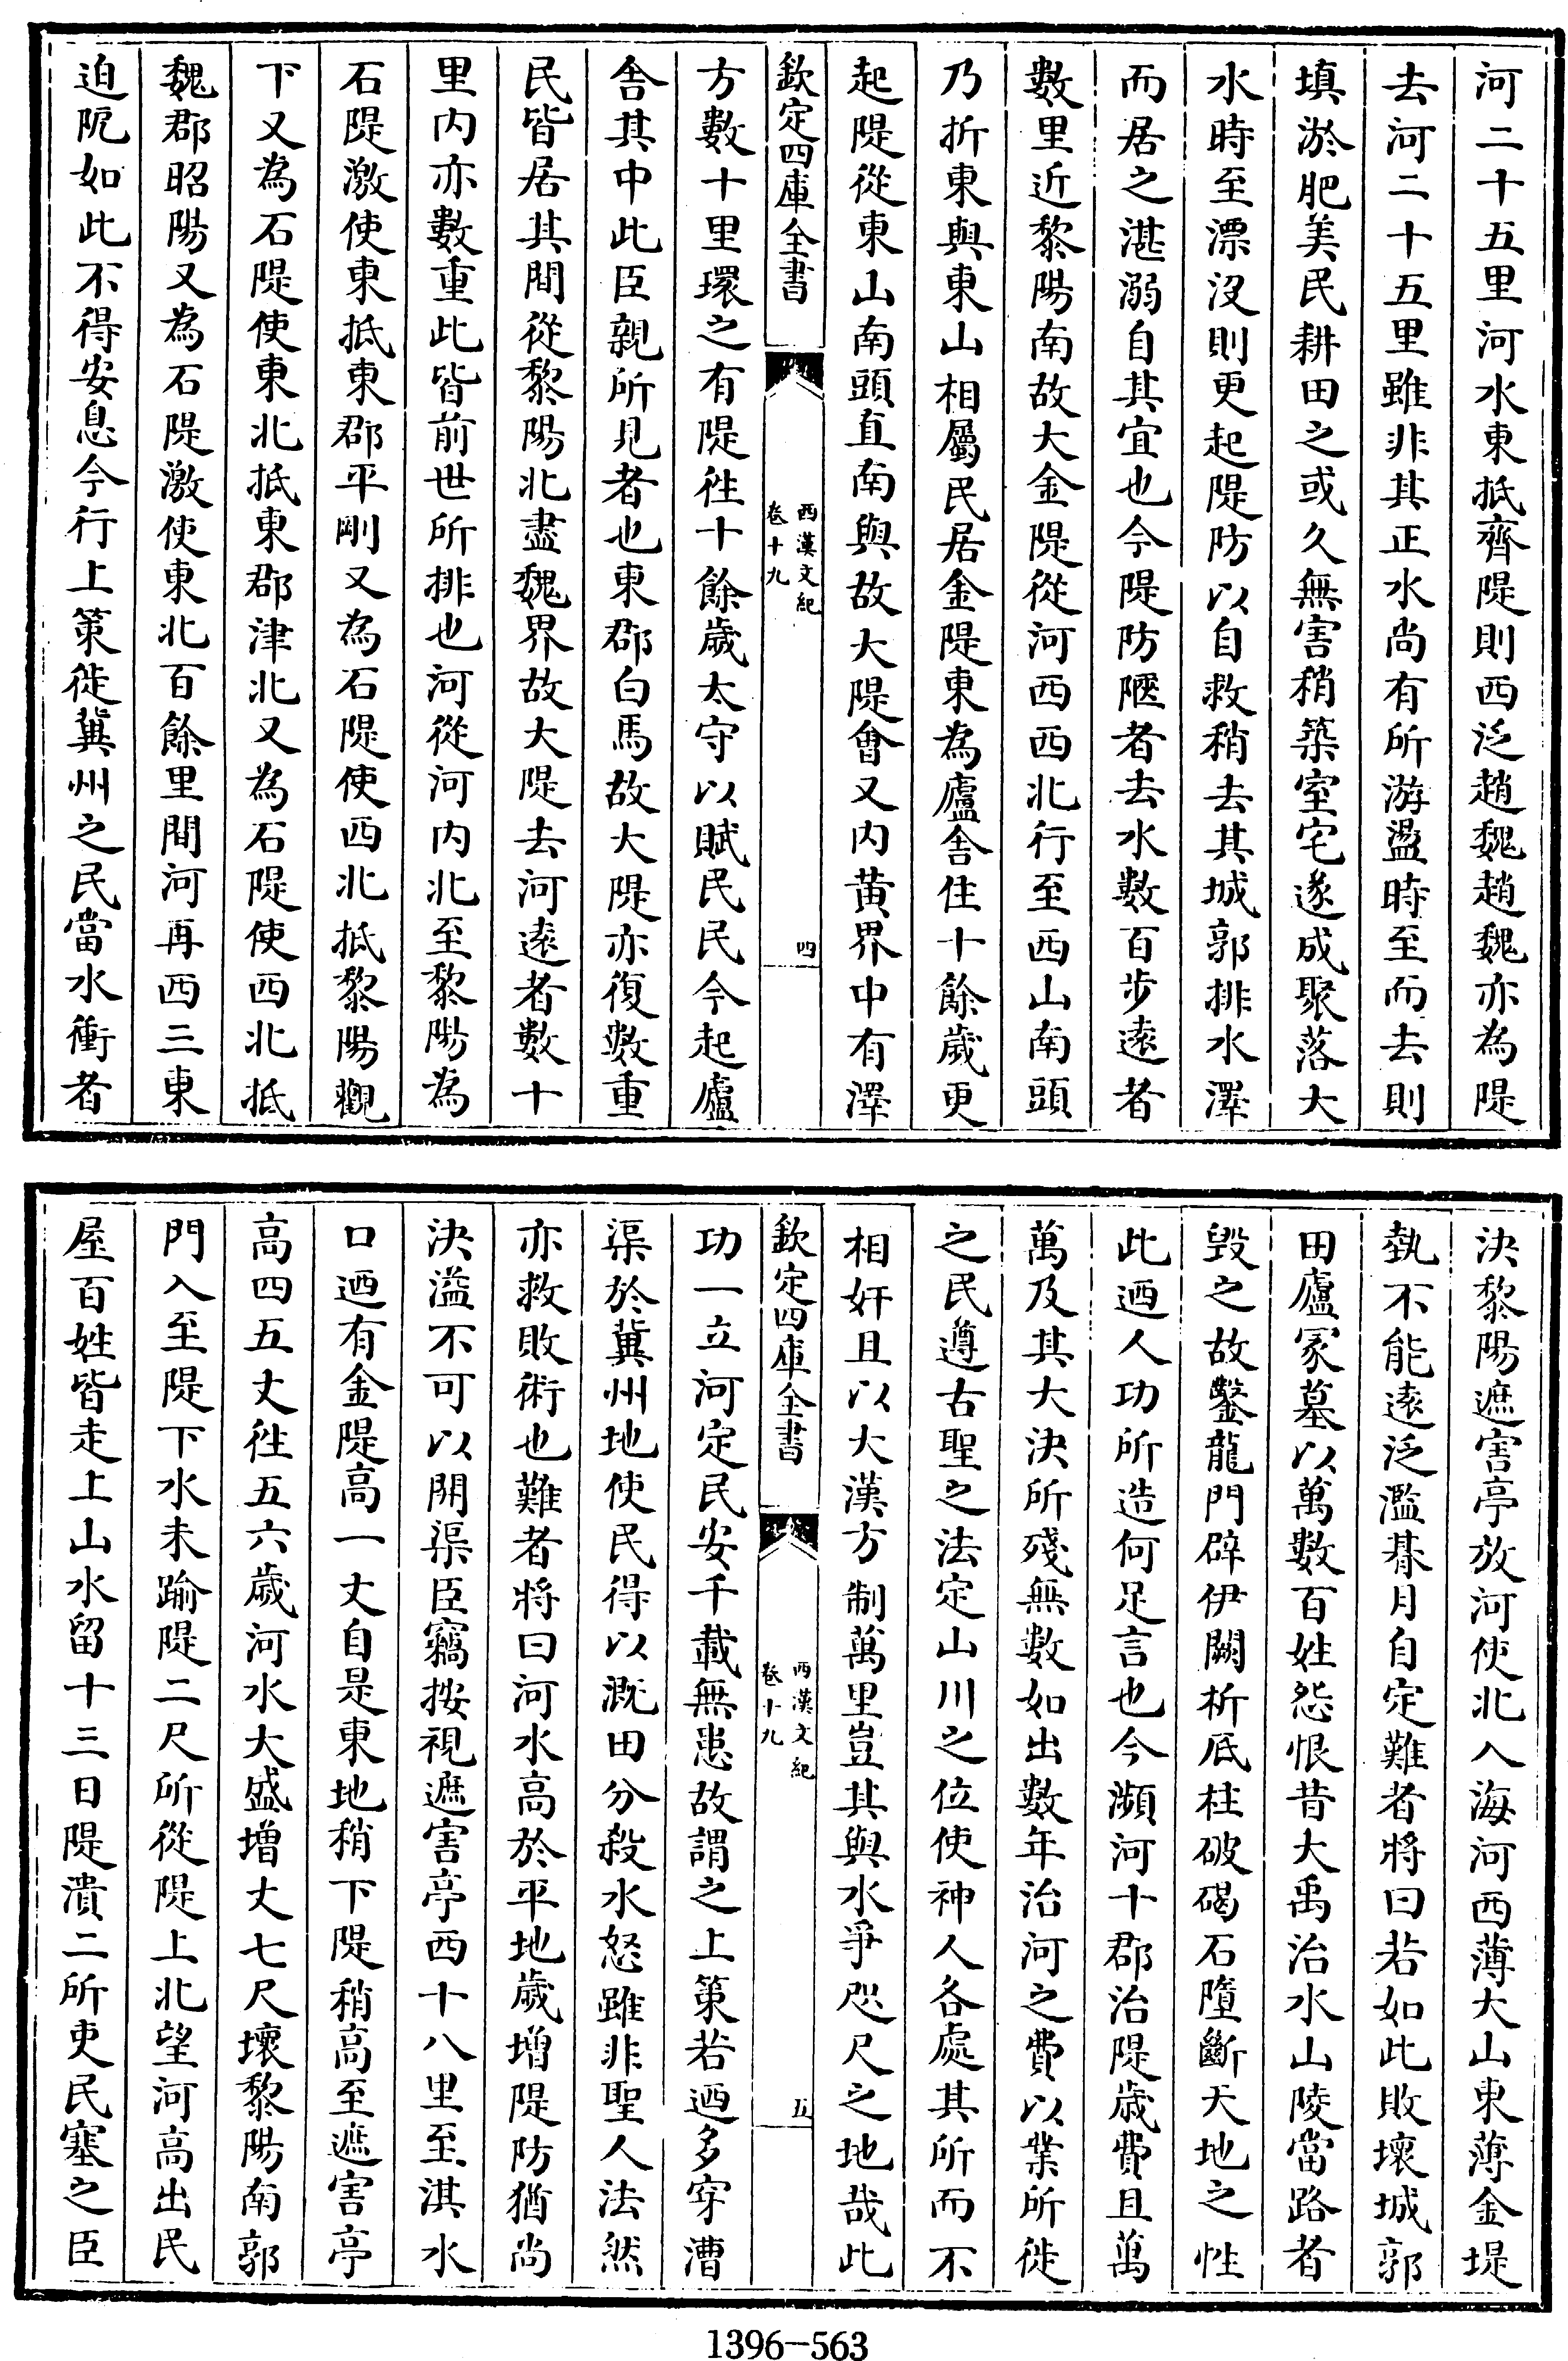 河二十五里河水東抵齊隄則西泛趙魏趙魏亦為隄
去河二十五里雖非其正水尚有所游盪時至而去則
填淤肥美民耕田之或久無害稍築室宅遂成聚落大
水時至漂沒則更起隄防以自救稍去其城郭排水澤
而居之湛溺自其宜也今隄防陿者去水數百步遠者
數里近黎陽南故大金隄從河西西北行至西山南頭
乃折東與東山相屬民居金隄東為廬舍住十餘歲更
起隄從東山南頭直南與故大隄會又内黄界中有澤
欽定四庫全書
西漢文紀
卷十九
四
方數十里環之有隄徃十餘歲太守以賦民民今起廬
舍其中此臣親所見者也東郡白馬故大隄亦復數重
民皆居其間從黎陽北盡魏界故大隄去河遠者數十
里内亦數重此皆前世所排也河從河内北至黎陽為
石隄激使東抵東郡平剛又為石隄使西北抵黎陽觀
下又為石隄使東北抵東郡津北又為石隄使西北抵
魏郡昭陽又為石隄激使東北百餘里間河再西三東
迫阨如此不得安息今行上策徙冀州之民當水衝者
決黎陽遮害亭放河使北入海河西薄大山東薄金堤
埶不能遠泛濫朞月自定難者將曰若如此敗壞城郭
田廬冢墓以萬數百姓怨恨昔大禹治水山陵當路者
毁之故鑿龍門辟伊闕析底柱破碣石墮斷天地之性
此迺人功所造何足言也今瀕河十郡治隄歳費且萬
萬及其大決所殘無數如出數年治河之費以業所徙
之民遵古聖之法定山川之位使神人各處其所而不
相奸且以大漢方制萬里豈其與水爭咫尺之地哉此
欽定四庫全書
西漢文紀
卷十九
五
功一立河定民安千載無患故謂之上策若迺多穿漕
渠於冀州地使民得以溉田分殺水怒雖非聖人法然
亦救敗術也難者將曰河水高於平地歲增隄防猶尚
決溢不可以開渠臣竊按視遮害亭西十八里至淇水
口迺有金隄高一丈自是東地稍下隄稍高至遮害亭
高四五丈徃五六歲河水大盛增丈七尺壞黎陽南郭
門入至隄下水未踰隄二尺所從隄上北望河高出民
屋百姓皆走上山水留十三日隄潰二所吏民塞之臣
1396-563